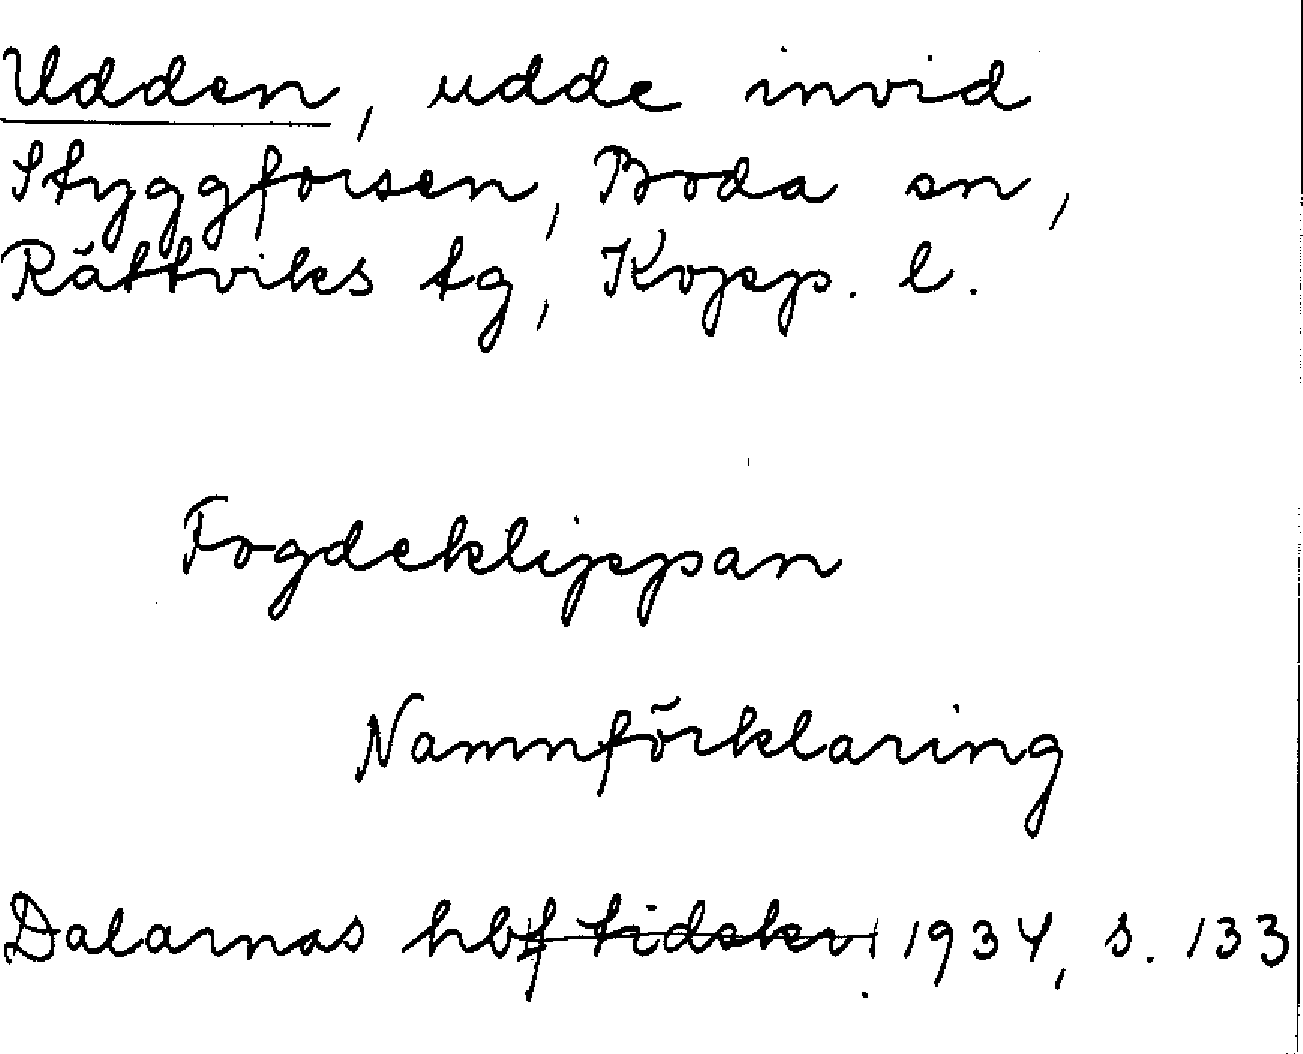 Udden, udde invid
Styggforsen, Boda sn,
Rättviks tg, Kopp. l.
Fogdeklippan
Namnförklaring
Dalarnas hbf tidskr. 1934, s. 133